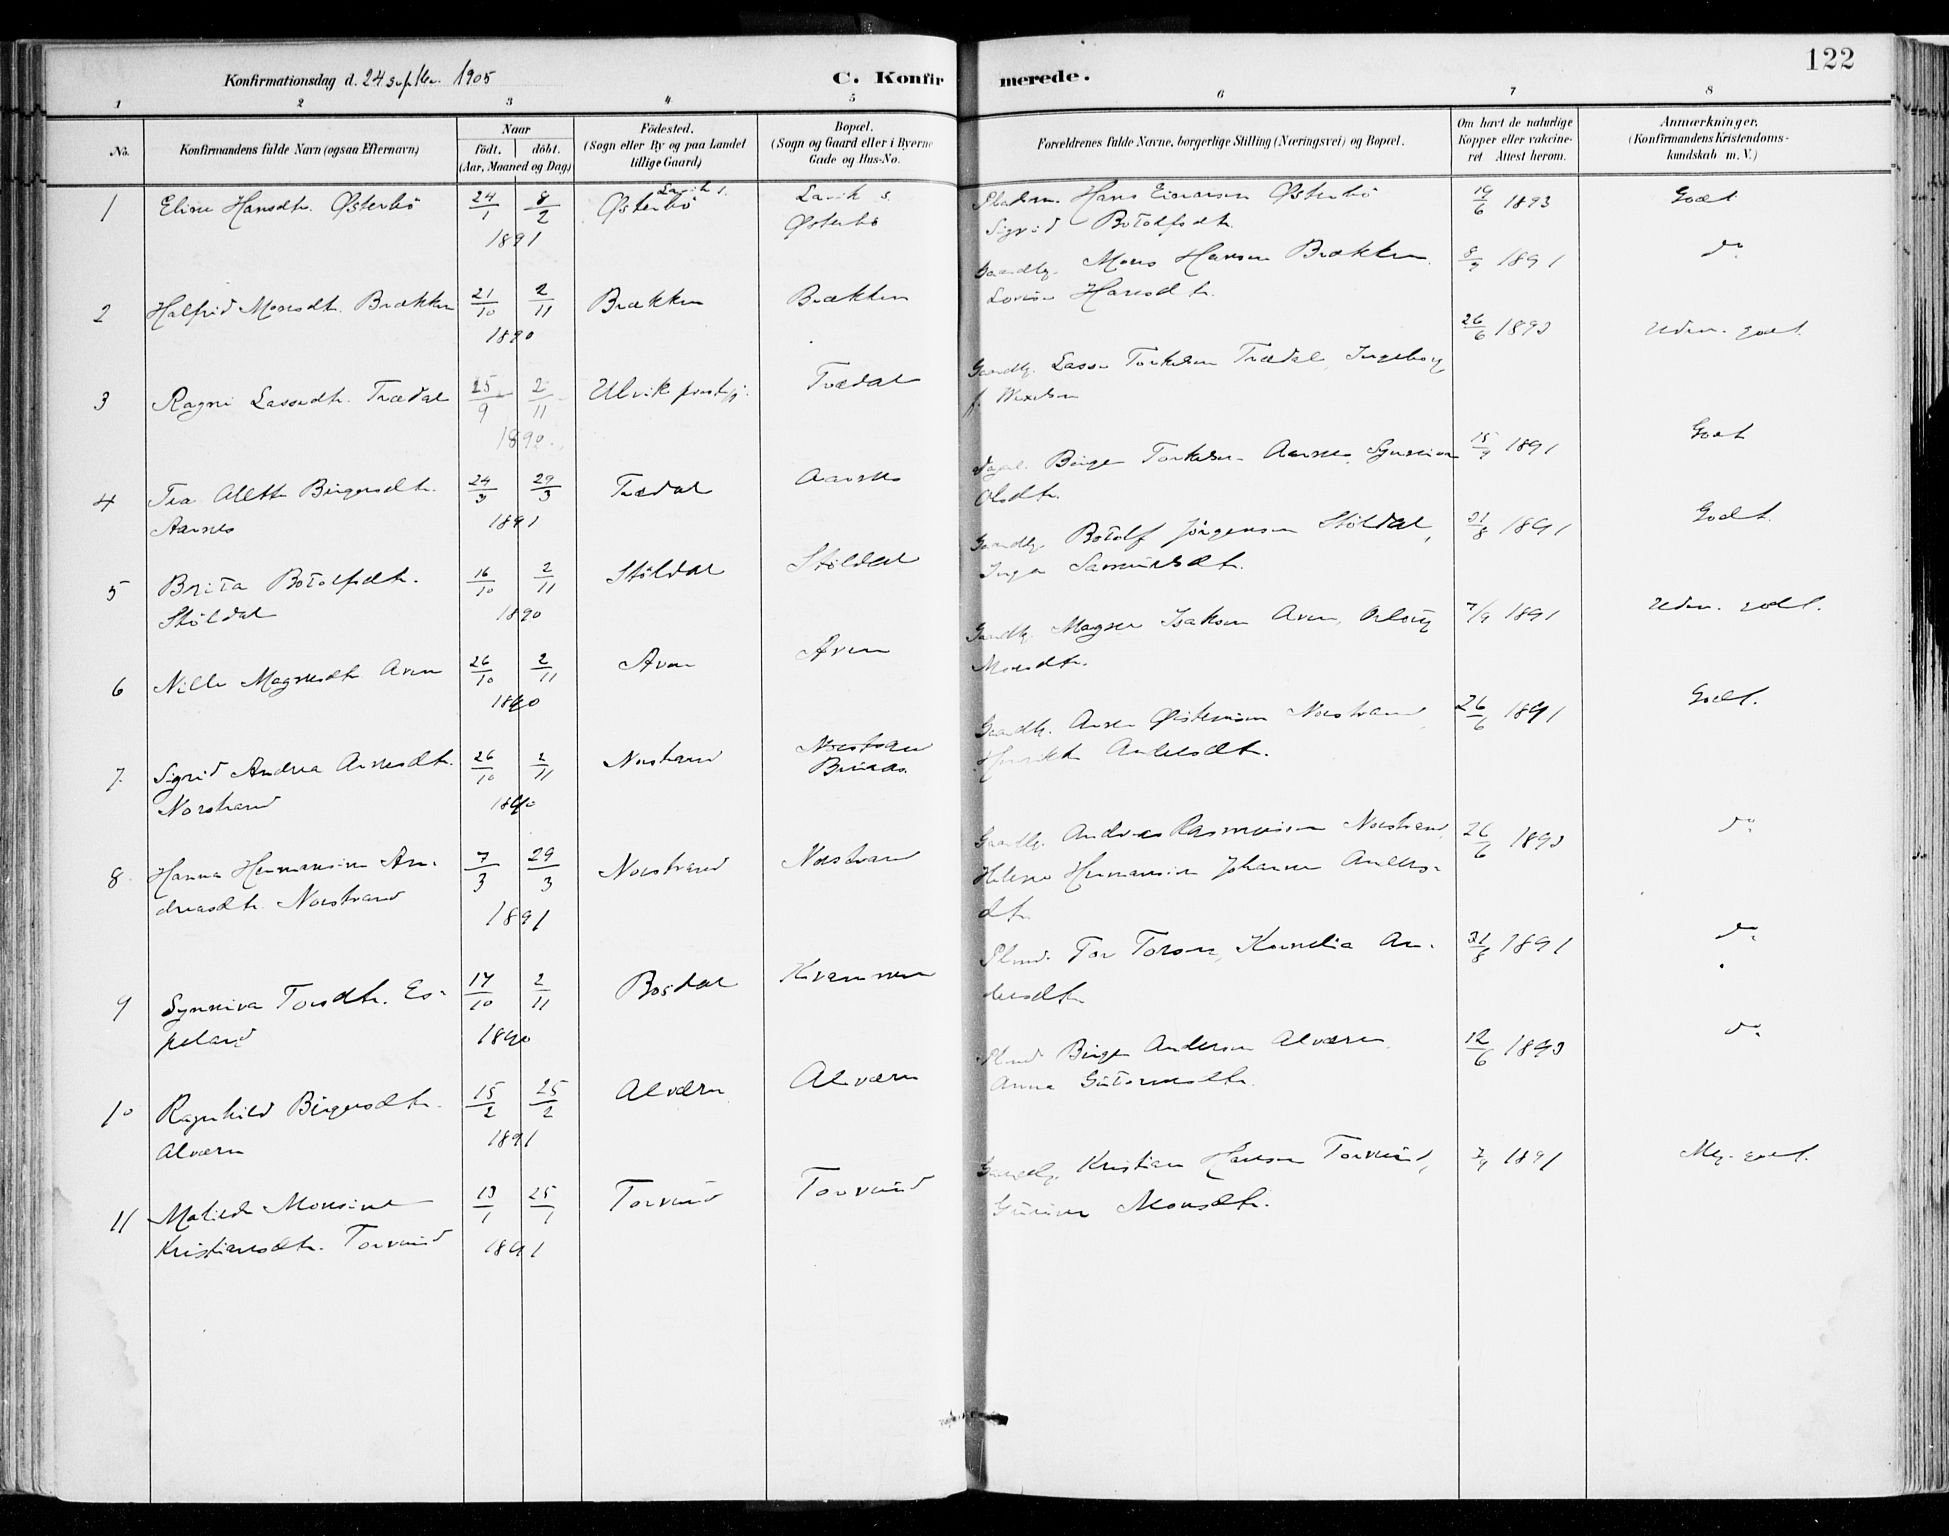 122
Konfirmationsdag d. 24 septbr. 1905
C. Konfirmerede.
1 2 3 4 5 6 7 8
No.
Konfirmandens fulde Navn (ogsaa Efternavn)
Naar
födt. döbt.
(Aar, Maaned og Dag)
Födested.
(Sogn eller By og paa Landet
tillige Gaard)
Bopæl.
(Sogn og Gaard eller i Byerne
Gade og Hus-No.
Forældrenes fulde Navne, borgerlige Stilling (Næringsvei) og Bopæl.
Om havt de naturlige
Kopper eller vakcine-
ret Attest herom.
Anmærkninger,
(Konfirmandens Kristendoms-
kundskab m. V.)
1 Eline Hansdtr. Østerbö 24/1 8/2 Østerbö Lavik s. Lavik s. Pladsm. Hans Einarson Østerbö 19/6 1893 Godt
1891 Østerbö Sigrid Botolfsdtr.
2 Halfrid Monsdtr. Brækken 21/10 2/11 Brækken Brækken Gaardbr. Mons Hanson Brækken 8/9 1891 do
1890 Lovise Hansdtr.
3 Ragni Lassedtr. Trædal 25/9 2/11 Ulvik prestgj. Trædal Gaardbr. Lasse Torkelsen Trædal, Ingeborg 26/6 1893 Uden. godt.
1890 f.
4 Tea Alette Birgersdtr. 24/3 29/3 Trædal Aarnes Birger Torkelsen Aarnes, Synneva 15/9 1891 Godt
Aarnes 1891 Olsdtr.
5 Brita Botolfsdtr. 16/10 2/11 Stöldal Stöldal Gaardbr. Botolf Jörgenson Stöldal, 31/8 1891 Godt.
Stöldal 1890 Inga Samuelsdtr.
6 Nille Magnesdtr. Aven 26/10 2/11 Aven Aven Gaardbr. Magne Isakson Aven, 7/9 1891 Uden. godt.
1890 Monsdtr.
7. Sigrid Andrea Arnesdtr. 26/10 2/11 Norstrand Norstrand Gaardbr. Arne Østenson Norstrand, 26/6 1891 Godt.
Norstrand 1890 Andersdtr.
8. Hanna Hermansine An- 7/3 29/3 Norstrand Norstrand Gaardbr. Andreas Rasmusson Norstrand, 26/6 1893 do
dreasdtr. Norstrand 1891 Helene Hermansine Johanne Anders-
dtr.
9 Synneva Torsdtr. Es- 17/10 2/11 Bosdal Kvammen Tor Torson, Kornelia An- 31/8 1891 do
peland 1890 dersdtr.
10 Ragnhild Birgersdtr. 15/2 25/2 Alværn Alværn Birger Anderson Alværn, 12/6 1893 do
Alværn 1891 Anna Gutormsdtr.
11 Matilde Monsine 13/1 25/1 Torvund Torvund Gaardbr. Kristian Hanson Torvund, 7/9 1891 Meg. godt.
Kristiansdtr. Torvund 1891 Monsdtr.